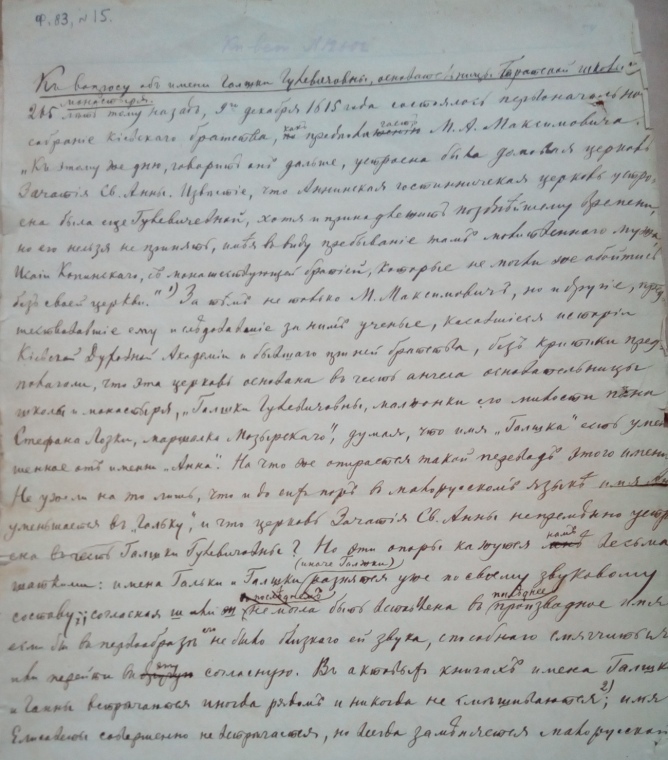 Ф. 83, № 15.
Къ вопросу объ имени Галшки Гулевичовны, основательницы Братской школы и
монастыря.
лѣтъ тому назадъ, декабря 1615 года состоялось первоначальное
собранiе Кiевскаго братства, М. А. Максимовича.
„Къ этому же дню, говоритъ онъ дальше, устроена была домовая церковь
Зачатiя Св. Анны. Извѣстiе, что Аннинская гостинническая церковь устро-
ена была еще Гулевичевной, хотя и принадлежитъ позднѣйшему времени,
но его нельзя не принять, имѣя въ виду пребыванiе тамъ молитвеннаго мужа
Исаiи Копинскаго, съ монашествующей братiей, которые не могли же обойтись
безъ своей церкви." ¹) За тѣмъ не только М. Максимовичъ, но и другiе, пред-
шествовавшiе ему и слѣдовавшiе за нимъ ученые, касавшiеся исторiи
Кiевской Духовной Академiи и бывшаго при ней братства, безъ критики пред-
полагали, что эта церковь основана въ честь ангела основательницы
школы и монастыря, „Галшки Гулевичовны, малжонки его милости пана
Стефана Лозки, маршалка Мозырскаго", думая, что имя „Галшка" есть умень-
шенное отъ имени „Анна". На что же опирается такой переводъ этого имени?
Не ужели на то лишь, что и до сихъ поръ въ малорусскомъ языкѣ имя
уменьшается въ „Гальку", и что церковь Зачатiя Св. Анны непремѣнно устро-
ена въ честь Галшки Гулевичевны? Но эти опоры кажутся намъ весьма
(иначе Галшки)
шаткими: имена Гальки и Галшки разнятся уже по своему звуковому
составу; согласная ш или не могла быть вставлена въ позднее производное имя
если бы въ первообразѣ его не было близкаго ей звука, способнаго смягчиться
или перейти въ эту согласную. Въ актовыхъ книгахъ имена Галшки
и Ганны встрѣчаются иногда рядомъ и никогда не смѣшиваются ²); имя
Елисаветы совершенно не встрѣчается, но всегда замѣняется малорусскою